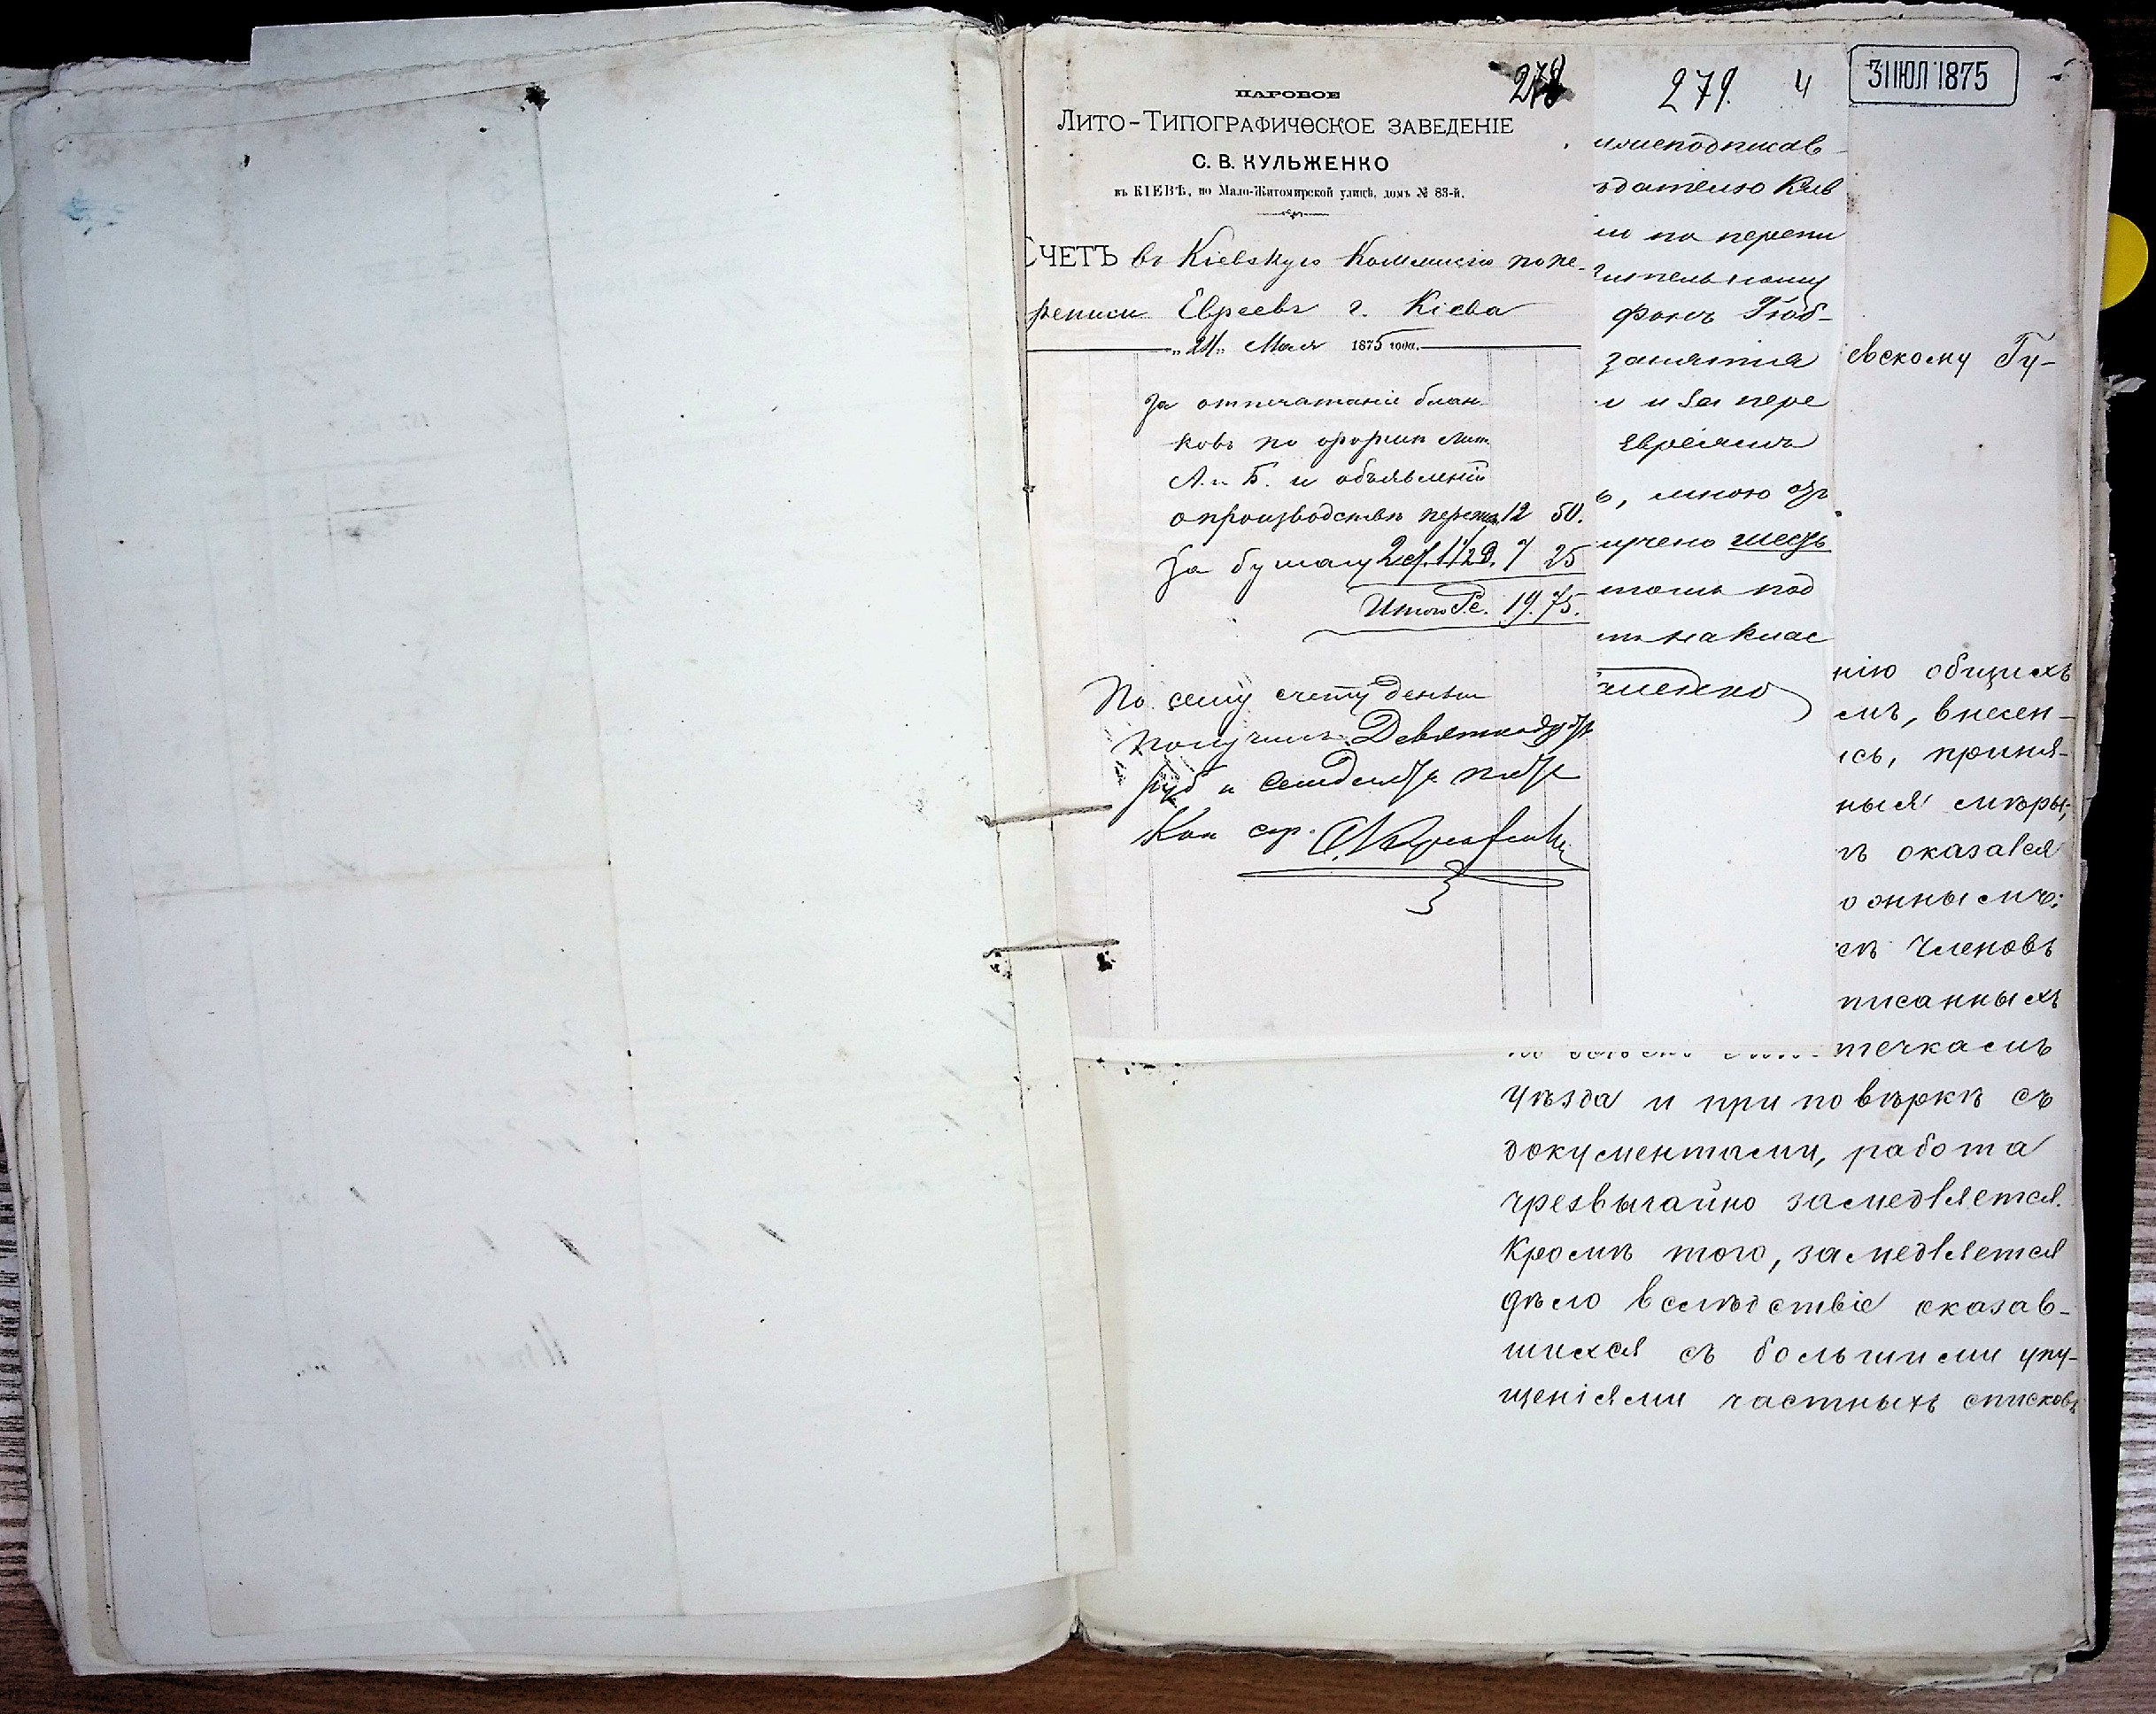 278
ПАРОВОЕ
ЛИТО-ТИПОГРАФИЧЕСКОЕ ЗАВЕДЕНІЕ
С. В. КУЛЬЖЕНКО
въ КІЕВѢ, по Мало-Житомирской улицѣ, домъ № 83-й.
СЧЕТЪ въ Кіевскую Коммисію по пе-
реписи Евреевъ г. Кіева
„24„ Мая 1875 года.
За отпечатаніе блан-
ковъ по формѣ Лит.
А. и Б. и объявленій
о производствѣ 12 50.
За бумагу 7 25
Итого Рс. 19. 75.
По сему счету деньги
получилъ Девятнадцать
руб и семдесятъ пять
коп сер.
279. 4
нижеподписав-
по перепи
фонъ Гюб-
занятія
и за пере
Евреямъ
ь, мною
лучено шесть
томъ под
31 ІЮЛ 1875
евскому Гу-
нію общихъ
мъ, внесен-
ись, приня-
ныя мѣры;
ъ оказался
онныхъ;
Членовъ
писанныхъ
течкамъ
уѣзда и при повѣркѣ съ
документами, работа
чрезвычайно замедляется.
Кромѣ того, замедляется
дѣло вслѣдствіе оказав-
шихся съ большими упу-
щеніями частныхъ списковъ